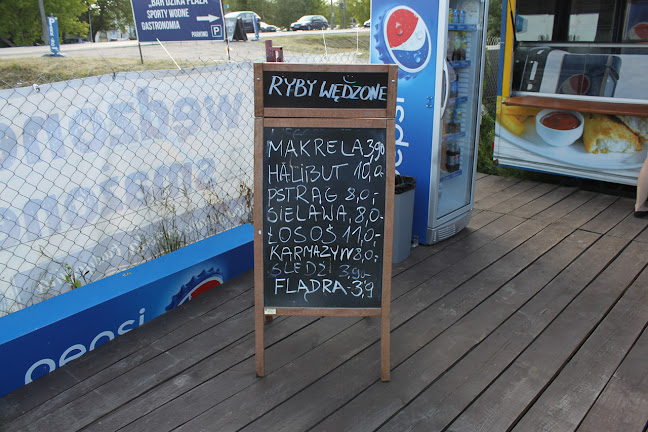 "BAR DZIKA PLAŻA
SPORTY WODNE
GASTRONOMIA
PARKING P
RYBY WĘDZONE
MAKRELA 3,90
HALIBUT 10,0-
PSTRĄG 8,0-
SIELAWA 8,0-
ŁOSOŚ 11,0-
KARMAZYN 8,0-
ŚLEDŹ 3,90-
FLĄDRA - 3,9
pepsi
pepsi